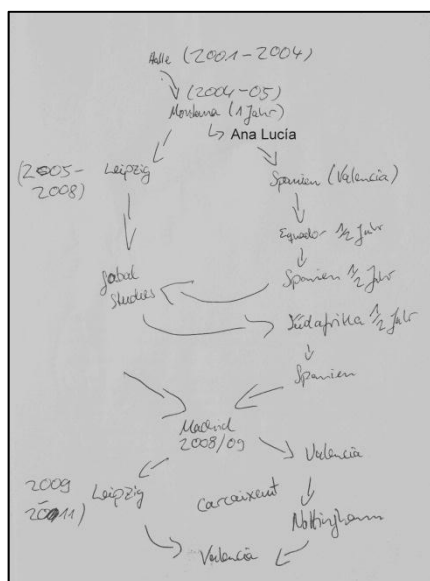 Halle (2001-2004)
(2004-05)
Montana (1 Jahr)
↳ Ana Lucía
(2005-2008) Leipzig
Spanien (Valencia)
Equador 1/2 Jahr
Global Studies
Spanien 1/2 Jahr
Südafrika 1/2 Jahr
Spanien
Madrid
2008/09
Valencia
2009
2011) Leipzig
Carcaixent
Nottingham
Valencia